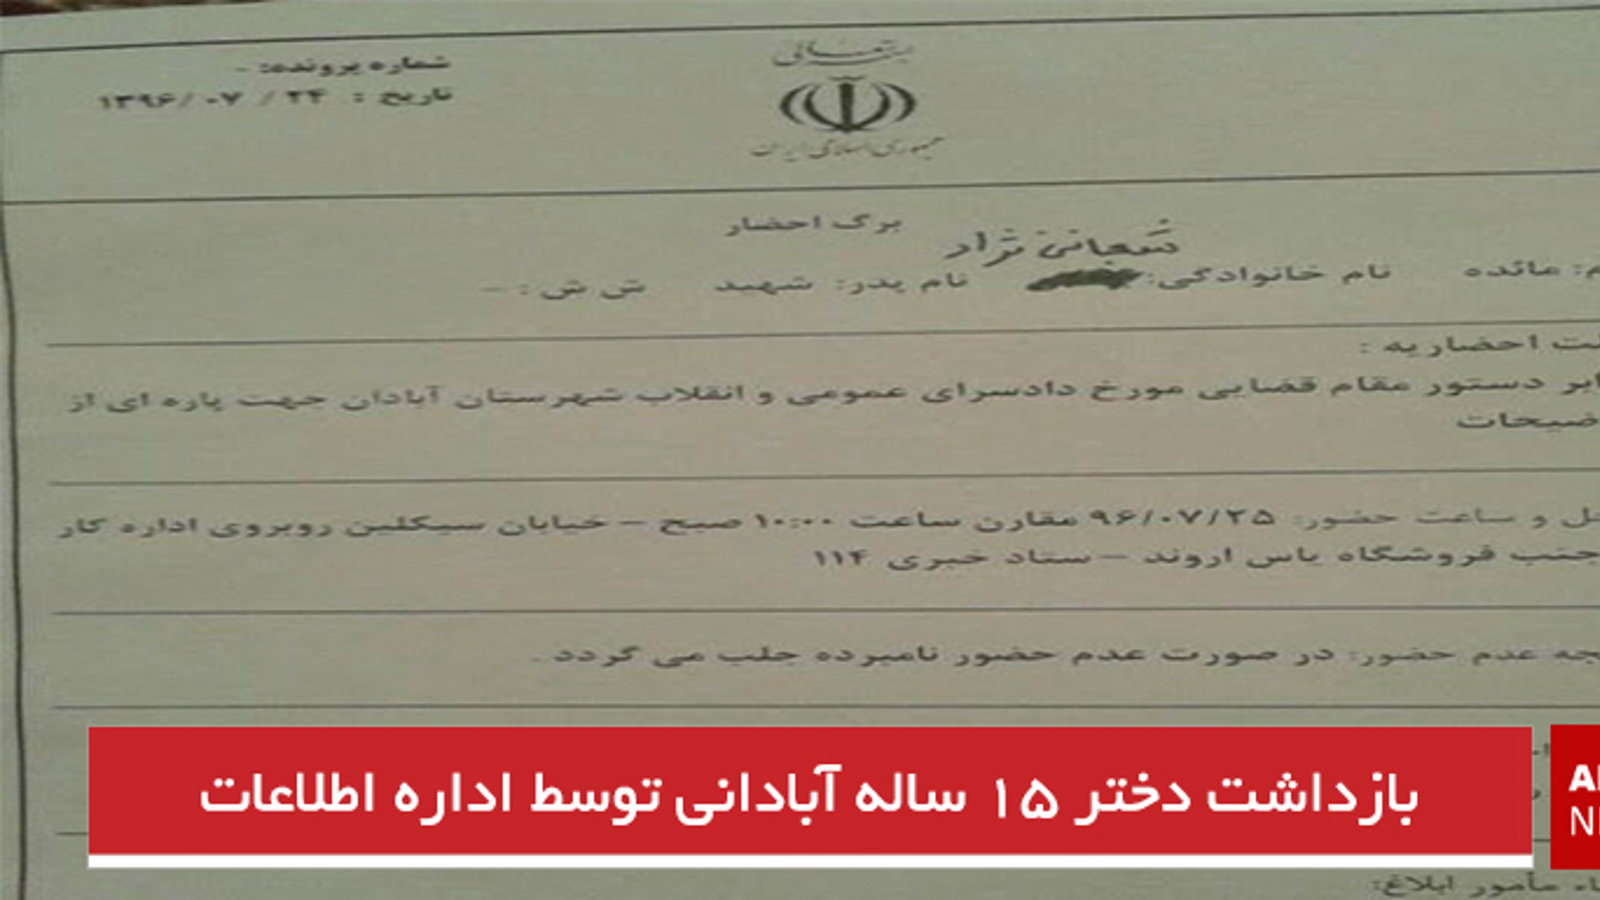 بسمتعالی
شماره پرونده: -
تاریخ : ۲۴ / ۰۷ /۱۳۹۶
جمهوری اسلامی ایران
برگ احضار
شعبانی نژاد
م: مائده نام خانوادگی: نام پدر: شهید ش ش : -
ت احضاریه :
ابر دستور مقام قضایی مورخ دادسرای عمومی و انقلاب شهرستان آبادان جهت پاره ای از
ضیحات
ل و ساعت حضور: ۹۶/۰۷/۲۵ مقارن ساعت ۱۰:۰۰ صبح – خیابان سیکلین روبروی اداره کار
جنب فروشگاه یاس اروند – ستاد خبری ۱۱۴
جه عدم حضور: در صورت عدم حضور نامبرده جلب می گردد .
بازداشت دختر ۱۵ ساله آبادانی توسط اداره اطلاعات
ء مأمور ابلاغ: